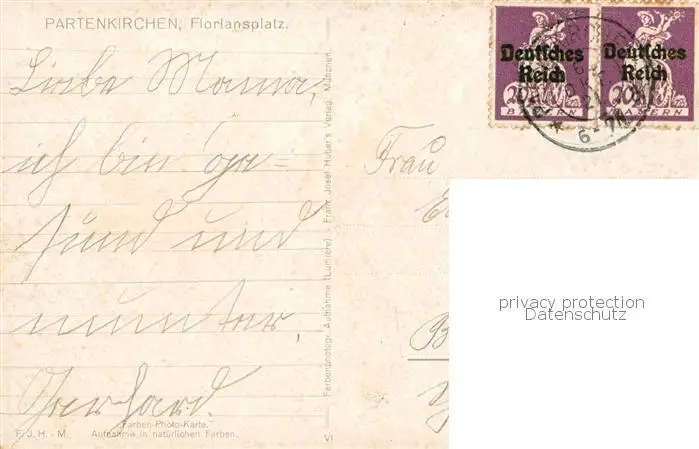 PARTENKIRCHEN, Floriansplatz.
Liebe Mama,
ich bin ge=
sund und
munter,
Gerhard.
"Farben-Photo-Karte."
F. J. H. - M. Aufnahme in natürlichen Farben.
Farbenphotogr. Aufnahme (Lumière). - Franz Josef Huber's Verlag, München.
Deutsches
Reich
20 20
BAYERN
Deutsches
Reich
20
BAYERN
Frau
privacy protection
Datenschutz